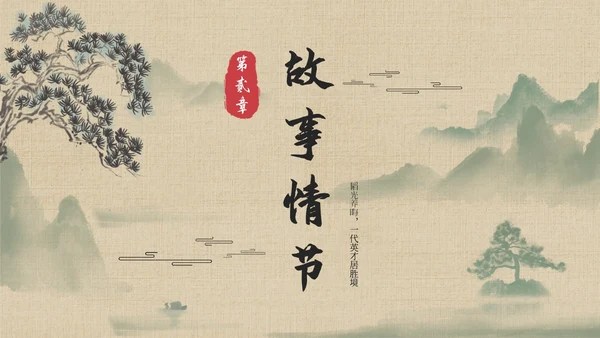 第贰章
故事情节
韬光养晦，一代英才居胜境